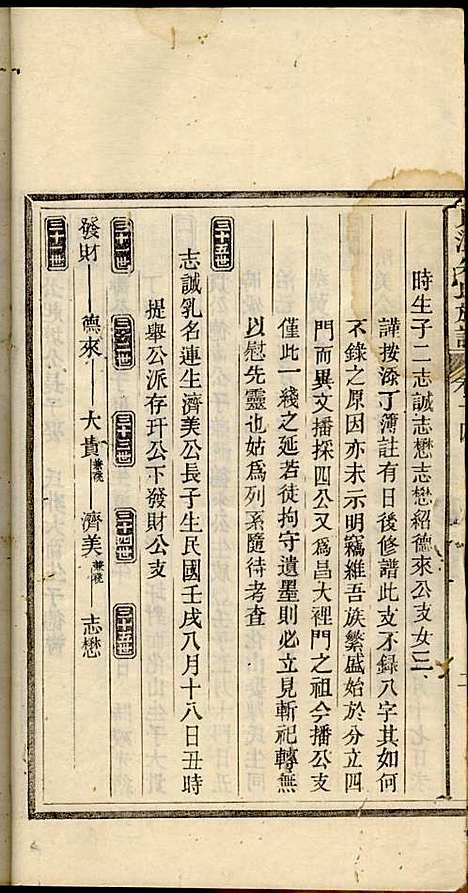 時生子二志誠志懋志懋紹德來公支女三
謹按添丁簿註有日後修譜此支不錄八字其如何
不錄之原因亦未示明竊維吾族繁盛始於分立四
門而異文播探四公又為昌大裡門之祖今播公支
僅此一綫之延若徒拘守遺墨則必立見斬祀轉無
以慰先靈也姑為列系隨待考查
三十五世
志誠乳名連生濟美公長子生民國壬戌八月十八日丑時
提舉公派存玕公下發財公支
三十一世 三十二世 三十三世 三十四世 三十五世
發財 德來 大貴兼祧 濟美兼祧 志懋
三十一世